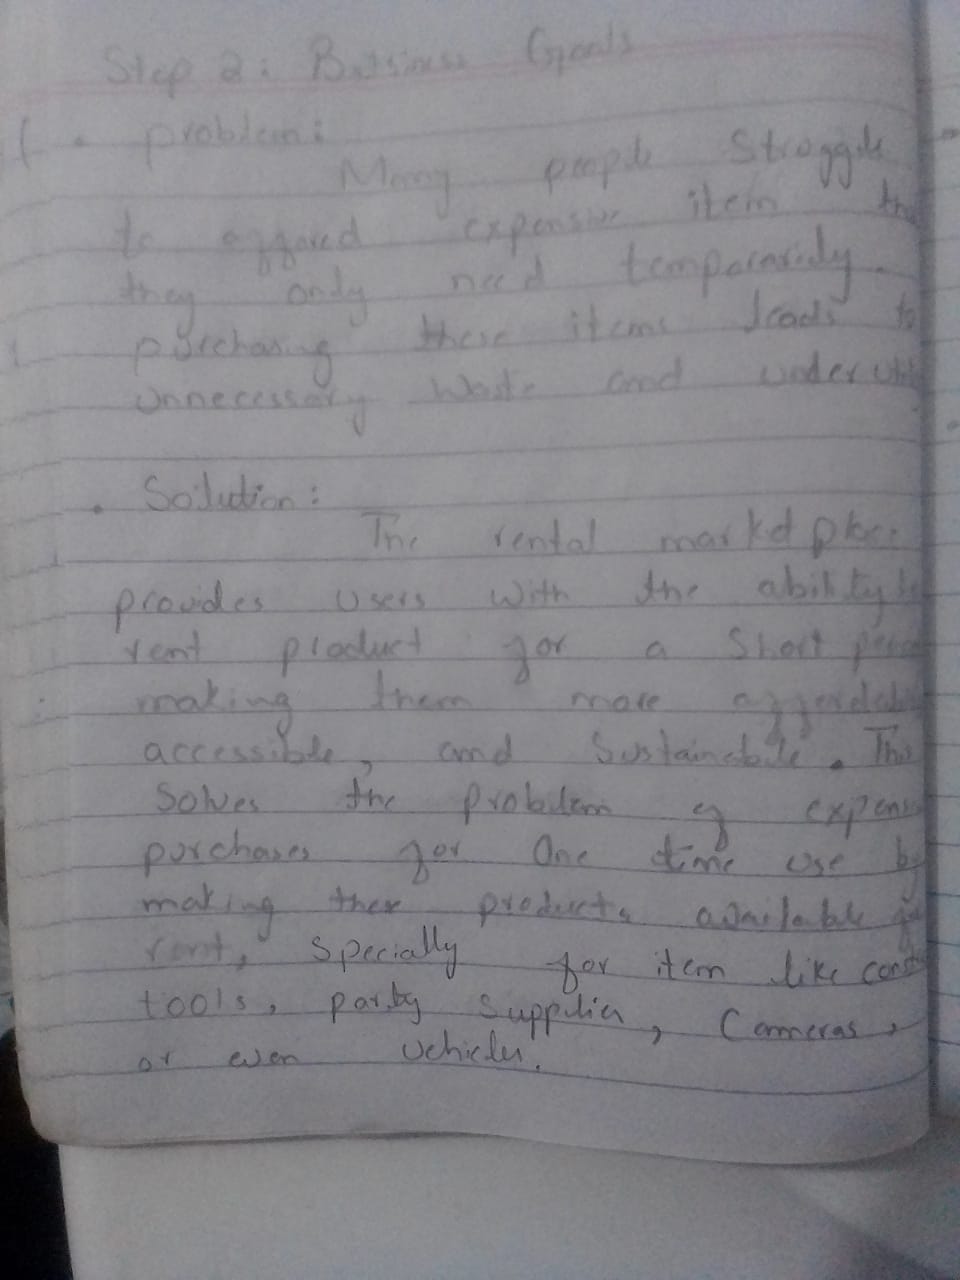 Step 2: Business Goals
• problem:
Many people Struggle
to afford expensive item
they only need temporarily.
purchasing these items leads to
unnecessary waste and
• Solution:
The rental marketplace
provides users with the ability to
rent product for a Short
making them more
accessible, and Sustainable. This
Solves the problem of
purchases for One time use by
making these products available for
rent, specially for item like
tools, party supplies, Cameras,
or even vehicles.